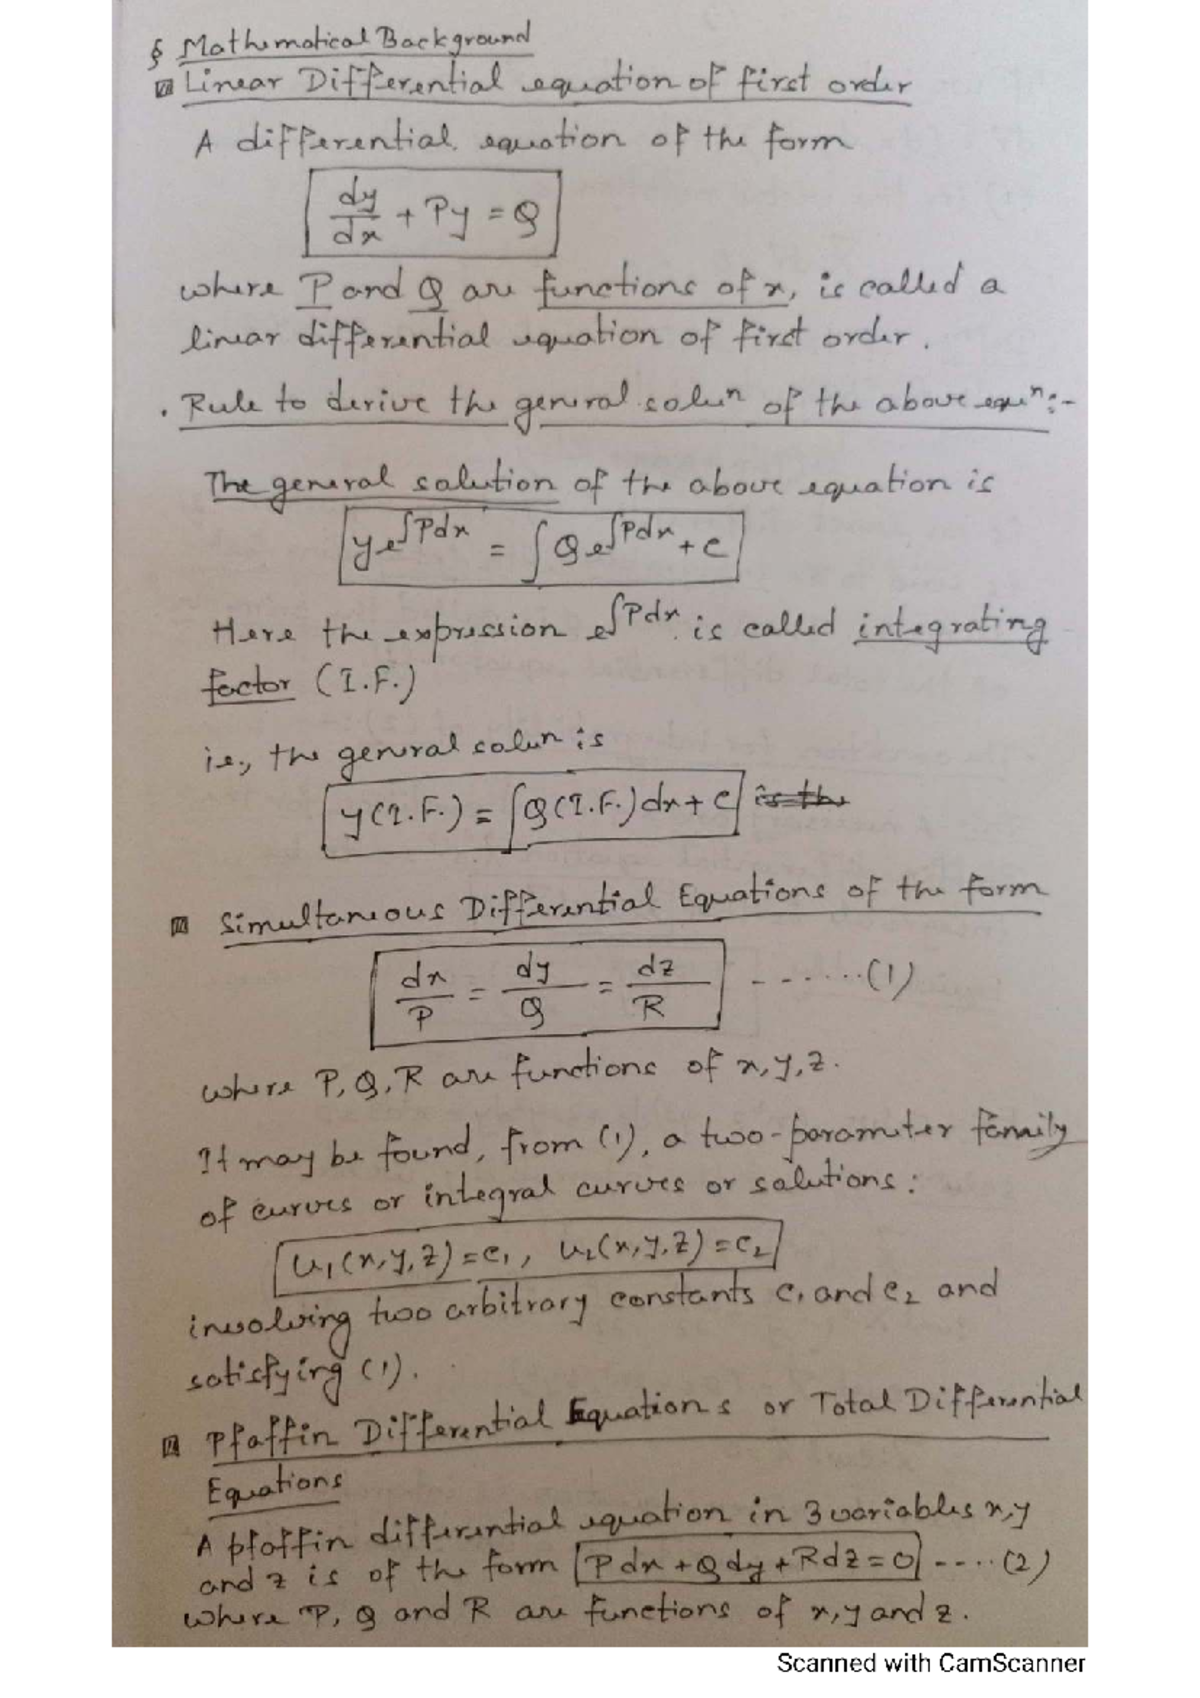 § Mathematical Background
Linear Differential equation of first order
A differential equation of the form
dy/dx + Py = Q
where P and Q are functions of x, is called a
linear differential equation of first order.
. Rule to derive the general soluⁿ of the above equⁿ:-
The general solution of the above equation is
ye^∫Pdx = ∫Qe^∫Pdx + c
Here the expression e^∫Pdx is called integrating
factor (I.F.)
ie., the general solun is
y(I.F.) = ∫Q(I.F.)dx + c is the
Simultaneous Differential Equations of the form
dx/P = dy/Q = dz/R ......(1)
where P, Q, R are functions of x, y, z.
It may be found, from (1), a two-parameter family
of curves or integral curves or solutions:
u₁(x,y,z)=c₁, u₂(x,y,z)=c₂
involving two arbitrary constants c₁ and c₂ and
satisfying (1).
Pfaffin Differential Equations or Total Differential
Equations
A pfaffin differential equation in 3 variables x, y
and z is of the form Pdx+Qdy+Rdz=0 ....(2)
where P, Q and R are functions of x, y and z.
Scanned with CamScanner